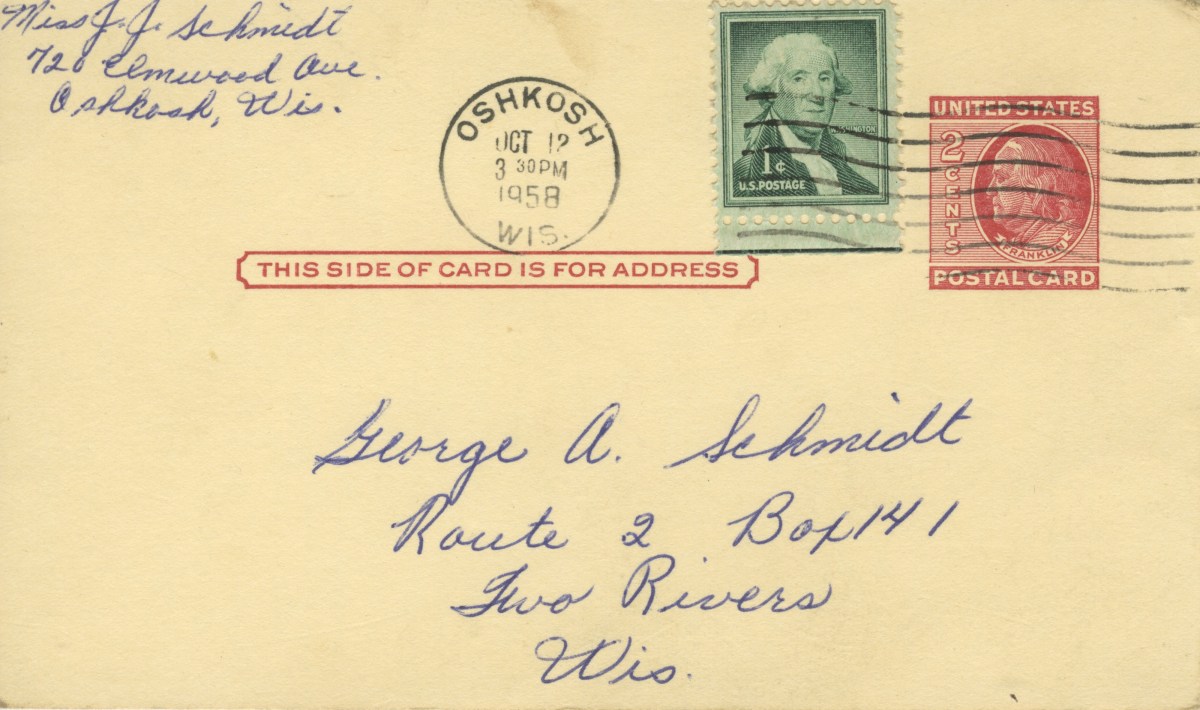 Miss J. J. Schmidt
720 Elmwood Ave.
Oshkosh, Wis.
OSHKOSH
OCT 12
3 30 PM
1958
WIS.
WASHINGTON
1¢
U.S. POSTAGE
UNITED STATES
2 CENTS
FRANKLIN
POSTAL CARD
THIS SIDE OF CARD IS FOR ADDRESS
George A. Schmidt
Route 2 Box 141
Two Rivers
Wis.